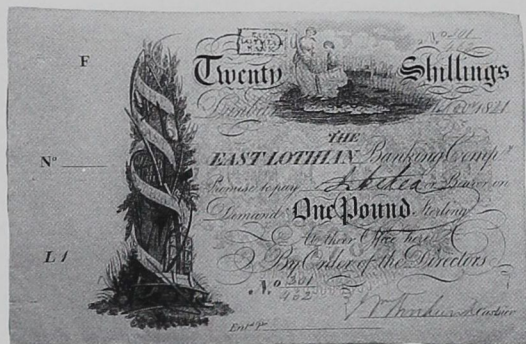 EAST
LOTHIAN
BANK
F
Twenty Shillings
Dunbar 1821
THE
Nº
EAST LOTHIAN Banking Compy
Promise to pay or Bearer on
Demand One Pound Sterling
L1
At their Office here
By Order of the Directors
Nº 301
402
Cashier
Entd pr